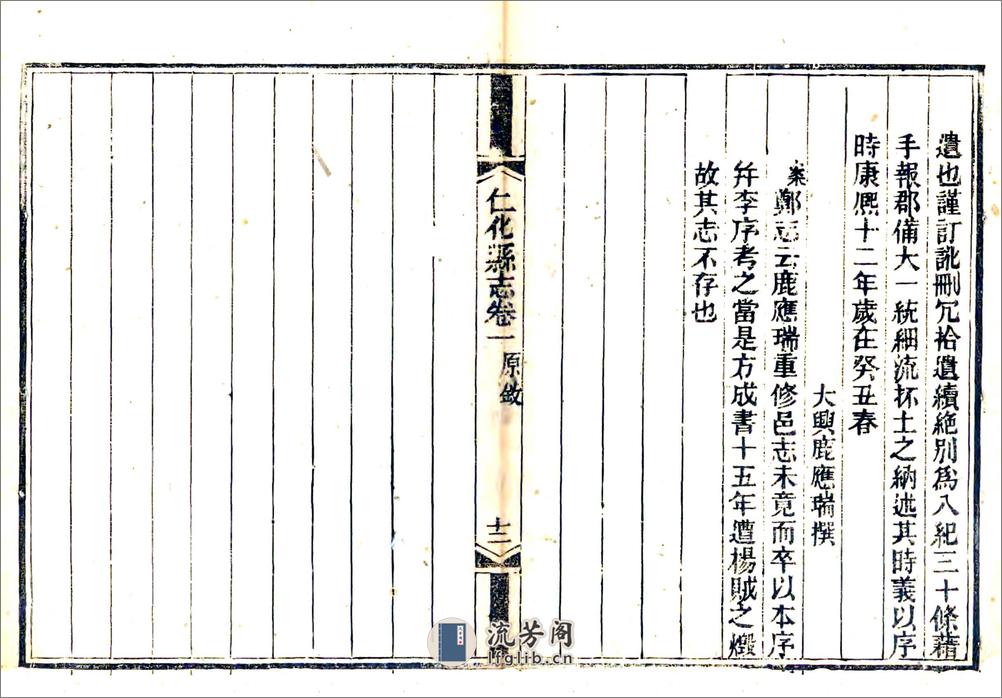 遺也謹訂訛刪冗拾遺續絶別爲八紀三十條藉
手報郡備大一統細流抔土之納述其時義以序
時康熈十二年歲在癸丑春
大興鹿應瑞撰
案鄭志云鹿應瑞重修邑志未竟而卒以本序
幷李序考之當是方成書十五年遭楊賊之燬
故其志不存也
仁化縣志卷一 原敘
十二
流芳阁
lfglib.cn